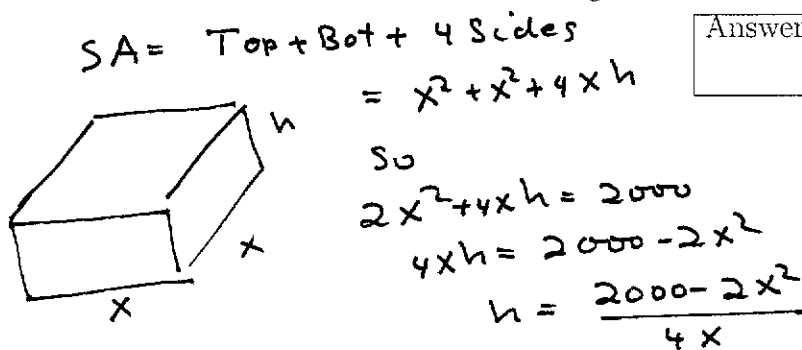 SA = Top + Bot + 4 Sides
Answer
= x² + x² + 4xh
h
So
2x² + 4xh = 2000
x
4xh = 2000 - 2x²
x
h = (2000 - 2x²) / 4x